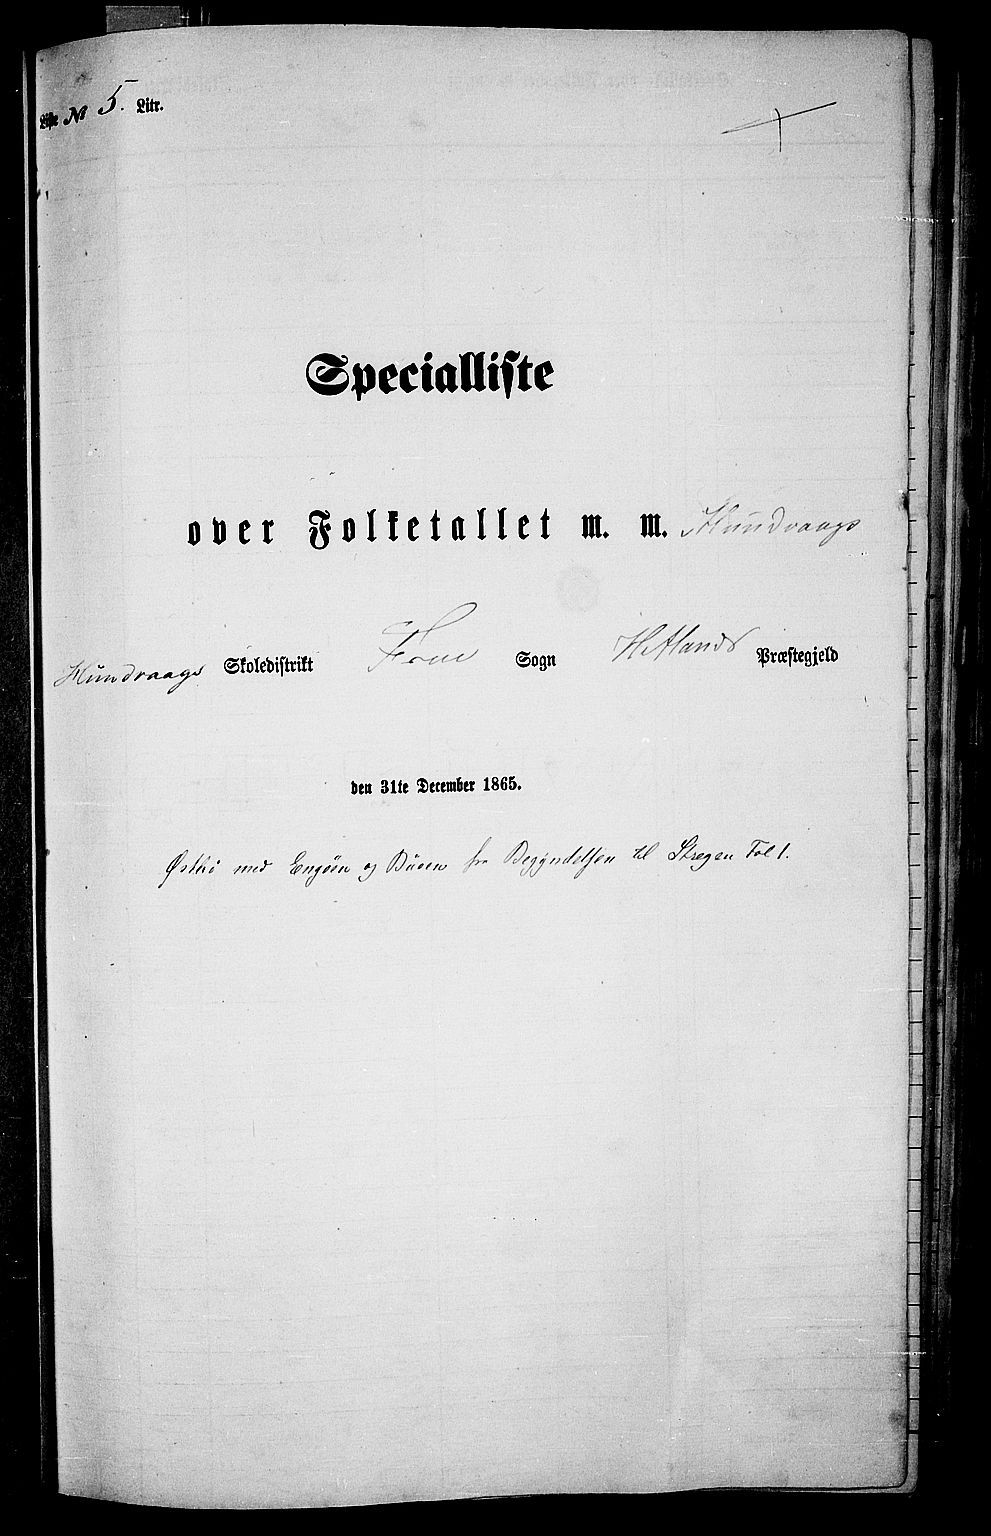 Liste № 5. Litr.
Specialliste
over Folketallet m. m. Hundvaags
Hundvaags Skoledistrikt Frue Sogn Hetlands Præstegjeld
den 31te December 1865.
Østbø med Engøen og Buøen fra Begyndelsen til Stregen Fol 1.